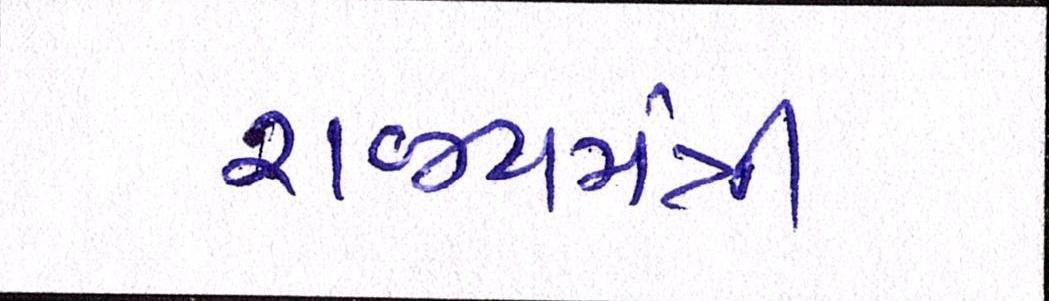 રાજ્યમંત્રી